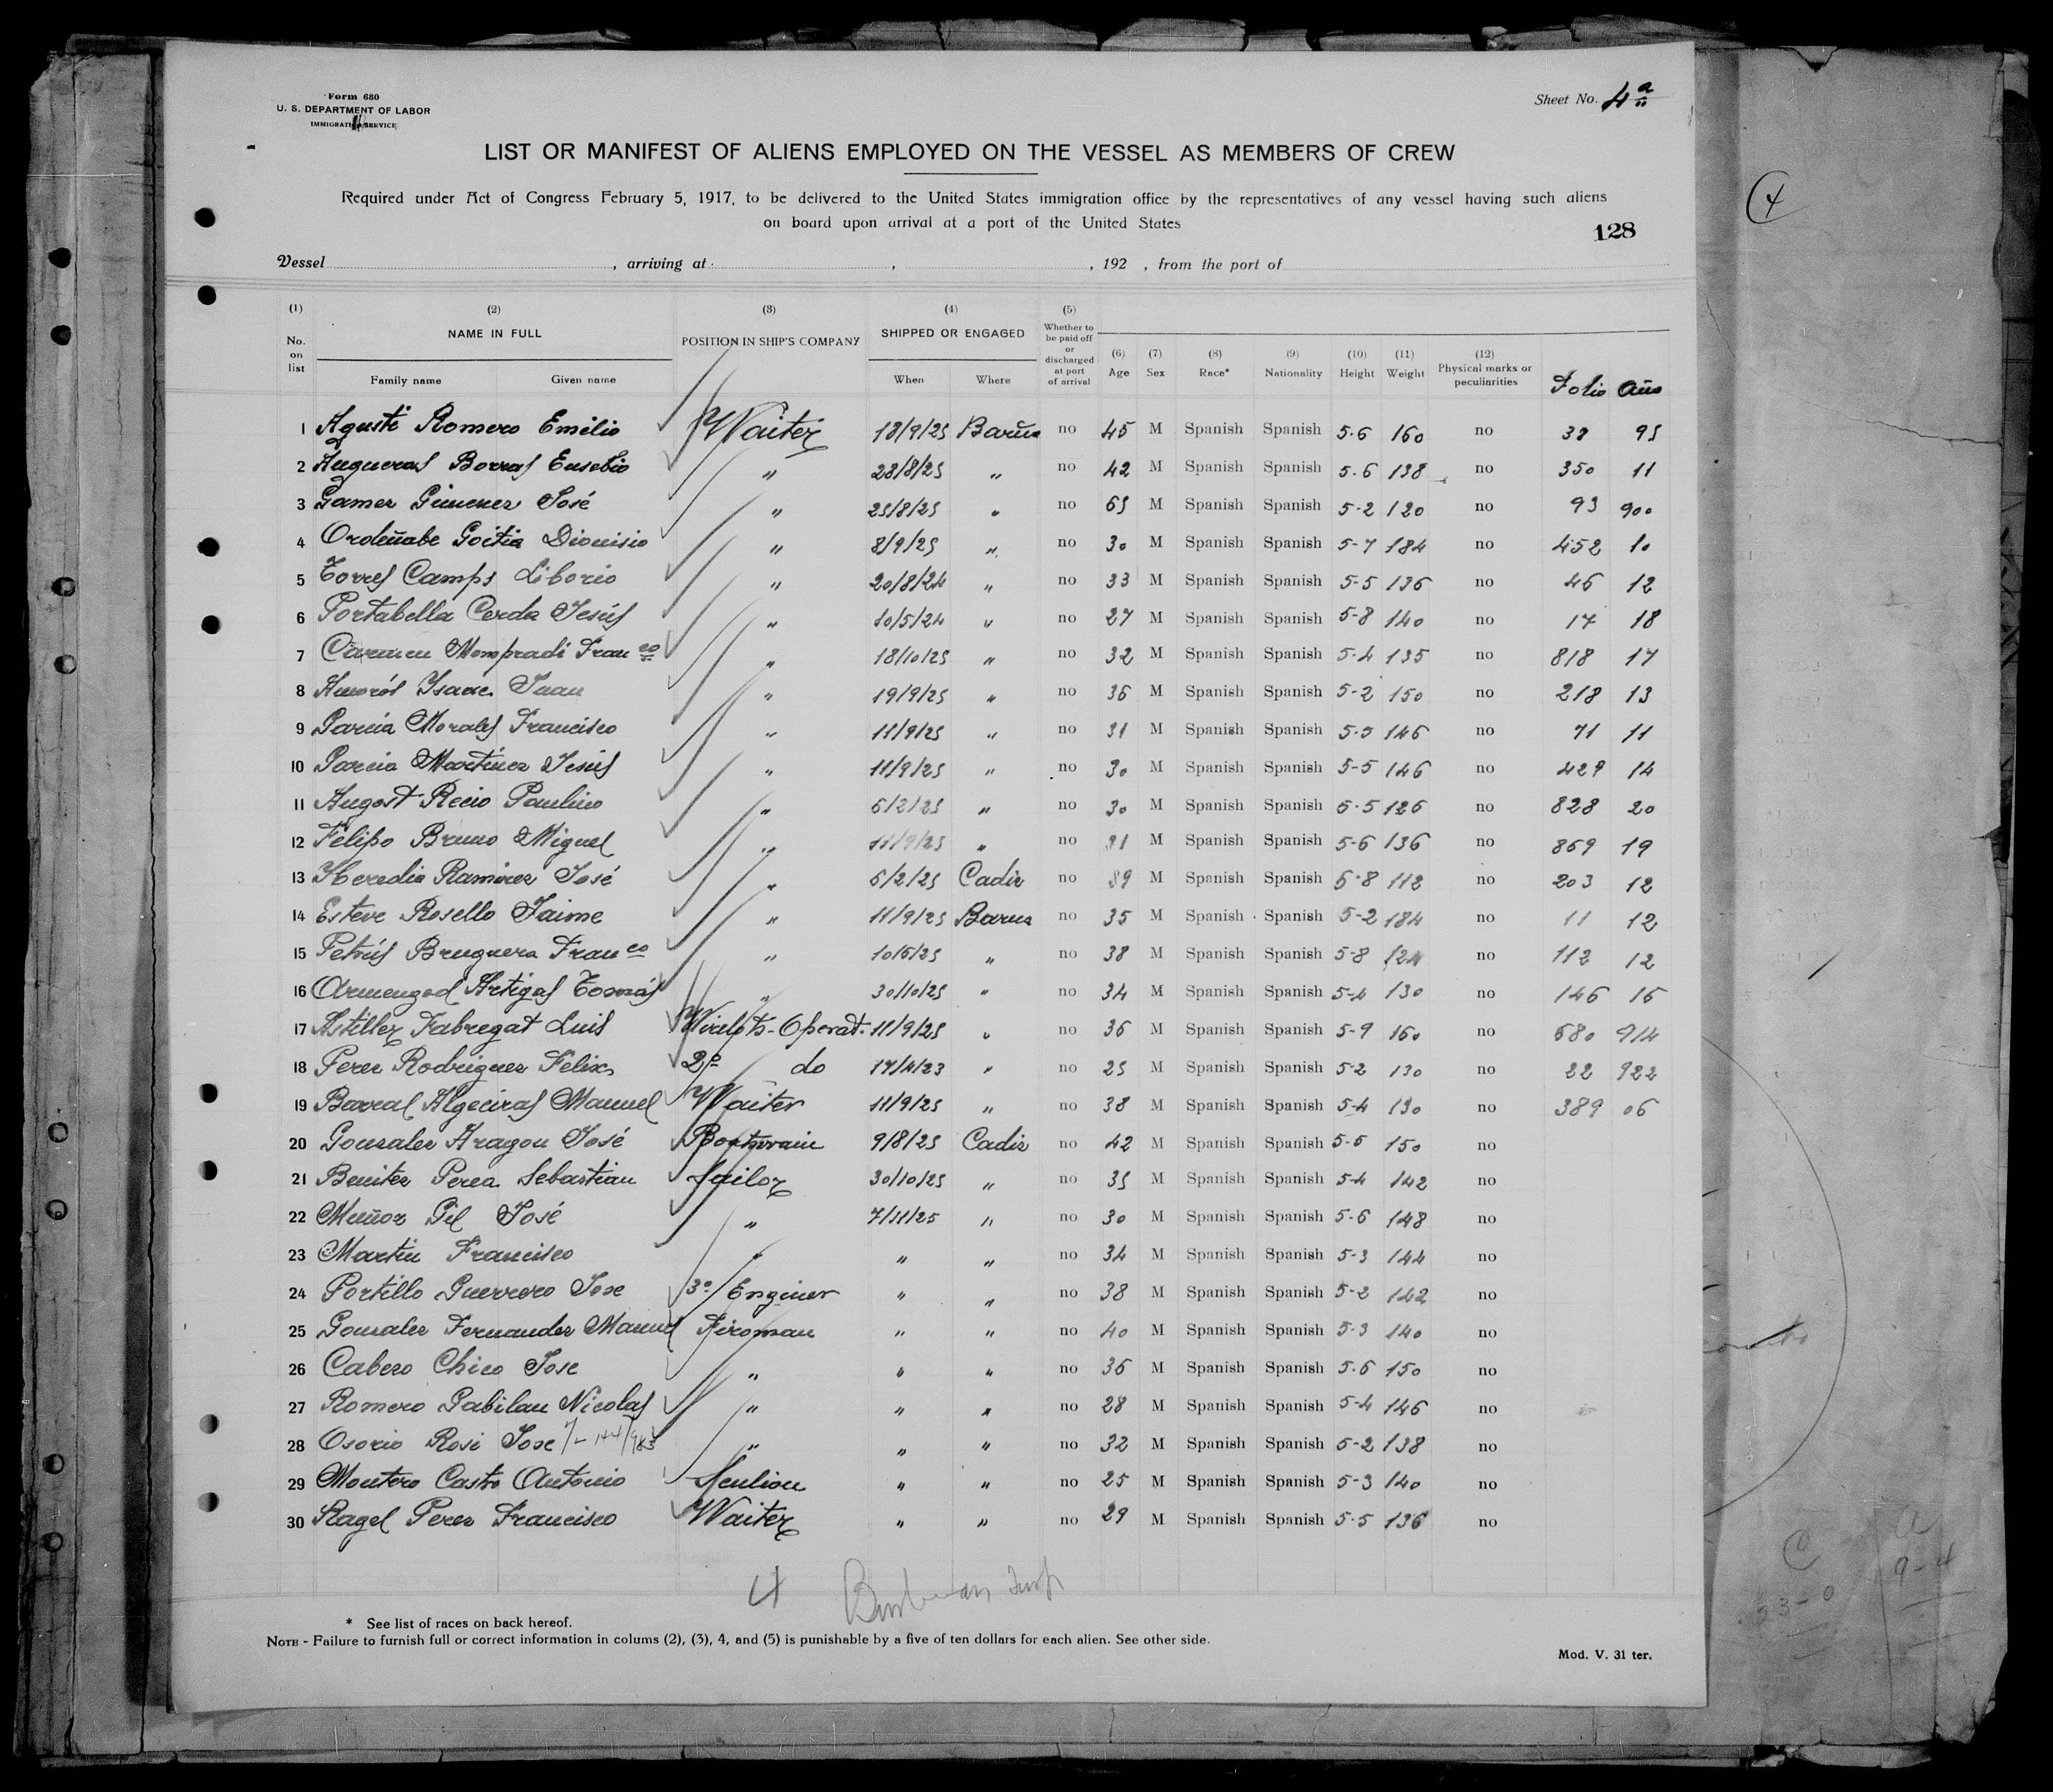 Form 680
U. S. DEPARTMENT OF LABOR
IMMIGRATION SERVICE
Sheet No. 4a
LIST OR MANIFEST OF ALIENS EMPLOYED ON THE VESSEL AS MEMBERS OF CREW
Required under Act of Congress February 5, 1917, to be delivered to the United States immigration office by the representatives of any vessel having such aliens
on board upon arrival at a port of the United States
128
Vessel , arriving at , , 192 , from the port of
(1) (2) (3) (4) (5) (6) (7) (8) (9) (10) (11) (12)
No. on list NAME IN FULL Family name Given name POSITION IN SHIP'S COMPANY SHIPPED OR ENGAGED When Where Whether to be paid off or discharged at port of arrival Age Sex Race* Nationality Height Weight Physical marks or peculiarities Folio Año
1 Agusti Romero Emilio Waiter 18/9/25 Barña no 45 M Spanish Spanish 5-6 160 no 38 95
2 Augueras Borras Eusebio " 28/8/25 " no 42 M Spanish Spanish 5-6 138 no 350 11
3 Gamer Gimenez José " 25/8/25 " no 65 M Spanish Spanish 5-2 120 no 93 900
4 Ordeñabe Goitia Dionisio " 8/9/25 " no 30 M Spanish Spanish 5-7 184 no 452 10
5 Torres Camps Liborio " 20/8/24 " no 33 M Spanish Spanish 5-5 136 no 46 12
6 Portabella Cerda Jesús " 10/5/24 " no 27 M Spanish Spanish 5-8 140 no 17 18
7 Carmen Mompradi Franco " 18/10/25 " no 32 M Spanish Spanish 5-4 135 no 818 17
8 Amorós Isaac Juan " 19/9/25 " no 36 M Spanish Spanish 5-2 150 no 218 13
9 Garcia Morales Francisco " 11/9/25 " no 31 M Spanish Spanish 5-5 146 no 71 11
10 Garcia Martinez Jesús " 11/9/25 " no 30 M Spanish Spanish 5-5 146 no 429 14
11 Angost Recio Paulino " 6/2/25 " no 30 M Spanish Spanish 5-5 126 no 828 20
12 Felipo Bruno Miguel " 11/9/25 " no 31 M Spanish Spanish 5-6 136 no 869 19
13 Heredia Ramirez José " 6/2/25 Cadiz no 39 M Spanish Spanish 5-8 112 no 203 12
14 Esteve Rosello Jaime " 11/9/25 Barna no 35 M Spanish Spanish 5-2 184 no 11 12
15 Petrús Bruguera Franco " 10/6/25 " no 38 M Spanish Spanish 5-8 124 no 112 12
16 Armengod Artigas Tomás " 30/10/25 " no 34 M Spanish Spanish 5-4 130 no 146 16
17 Astillez Fabregat Luis Operat. 11/9/25 " no 36 M Spanish Spanish 5-9 160 no 680 914
18 Perez Rodriguez Felix 2º do 17/4/23 " no 25 M Spanish Spanish 5-2 130 no 22 922
19 Barral Algeciras Manuel Waiter 11/9/25 " no 38 M Spanish Spanish 5-4 130 no 389 06
20 Gonzalez Aragon José Boatswain 9/8/25 Cadiz no 42 M Spanish Spanish 5-5 150 no
21 Benitez Perea Sebastian Sailor 30/10/25 " no 35 M Spanish Spanish 5-4 142 no
22 Muñoz Gil José " 7/11/25 " no 30 M Spanish Spanish 5-6 148 no
23 Martin Francisco " " " no 34 M Spanish Spanish 5-3 144 no
24 Portillo Guerrero Jose 3º Enginer " " no 38 M Spanish Spanish 5-2 142 no
25 Gonzalez Fernandez Manuel Fireman " " no 40 M Spanish Spanish 5-3 140 no
26 Cabezo Chico Jose " " " no 36 M Spanish Spanish 5-6 150 no
27 Romero Gabilan Nicolas " " " no 28 M Spanish Spanish 5-4 146 no
28 Osorio Rosi Jose " " " no 32 M Spanish Spanish 5-2 138 no
29 Montero Castro Antonio " " no 25 M Spanish Spanish 5-3 140 no
30 Ragel Perez Francisco Waiter " " no 29 M Spanish Spanish 5-5 136 no
* See list of races on back hereof.
NOTE - Failure to furnish full or correct information in colums (2), (3), 4, and (5) is punishable by a five of ten dollars for each alien. See other side.
Mod. V. 31 ter.